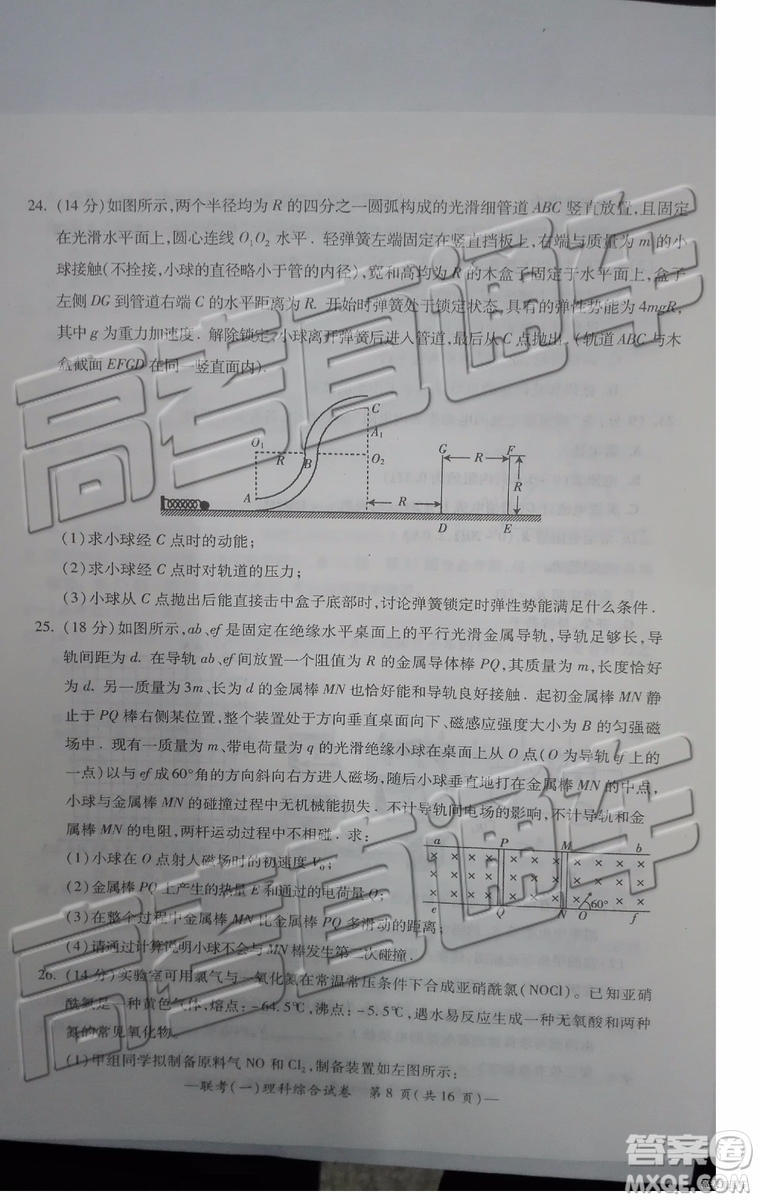 24. (14 分)如图所示,两个半径均为 R 的四分之一圆弧构成的光滑细管道 ABC 竖直放置,且固定
在光滑水平面上,圆心连线 O₁O₂ 水平．轻弹簧左端固定在竖直挡板上,右端与质量为 m 的小
球接触(不拴接,小球的直径略小于管的内径),宽和高均为 R 的木盒子固定于水平面上,盒子
左侧 DG 到管道右端 C 的水平距离为 R. 开始时弹簧处于锁定状态,具有的弹性势能为 4mgR,
其中 g 为重力加速度．解除锁定,小球离开弹簧后进入管道,最后从 C 点抛出．(轨道 ABC 与木
盒截面 EFGD 在同一竖直面内).
C
A₁
O₁
R
B
O₂
A
R
G
R
F
R
D
E
(1)求小球经 C 点时的动能;
(2)求小球经 C 点时对轨道的压力;
(3)小球从 C 点抛出后能直接击中盒子底部时,讨论弹簧锁定时弹性势能满足什么条件.
25. (18 分)如图所示,ab、ef 是固定在绝缘水平桌面上的平行光滑金属导轨,导轨足够长,导
轨间距为 d. 在导轨 ab、ef 间放置一个阻值为 R 的金属导体棒 PQ,其质量为 m,长度恰好
为 d. 另一质量为 3m、长为 d 的金属棒 MN 也恰好能和导轨良好接触．起初金属棒 MN 静
止于 PQ 棒右侧某位置,整个装置处于方向垂直桌面向下、磁感应强度大小为 B 的匀强磁
场中．现有一质量为 m、带电荷量为 q 的光滑绝缘小球在桌面上从 O 点(O 为导轨 ef 上的
一点)以与 ef 成 60°角的方向斜向右方进入磁场,随后小球垂直地打在金属棒 MN 的中点,
小球与金属棒 MN 的碰撞过程中无机械能损失．不计导轨间电场的影响,不计导轨和金
属棒 MN 的电阻,两杆运动过程中不相碰．求:
(1)小球在 O 点射人磁场时的初速度 V₀;
(2)金属棒 PQ 上产生的热量 E 和通过的电荷量 Q;
(3)在整个过程中金属棒 MN 比金属棒 PQ 多滑动的距离;
(4)请通过计算说明小球不会与 MN 棒发生第二次碰撞.
a
P
M
b
e
Q
N
O
60°
f
26. (14 分)实验室可用氯气与一氧化氮在常温常压条件下合成亚硝酰氯(NOCl)。已知亚硝
酰氯是一种黄色气体,熔点:-64.5℃,沸点:-5.5℃,遇水易反应生成一种无氧酸和两种
氮的常见氧化物。
(1)甲组同学拟制备原料气 NO 和 Cl₂,制备装置如左图所示:
—联考(一)理科综合试卷 第 8 页(共 16 页)—
高考直通车
高考直通车
答案圈
MXQE.COM